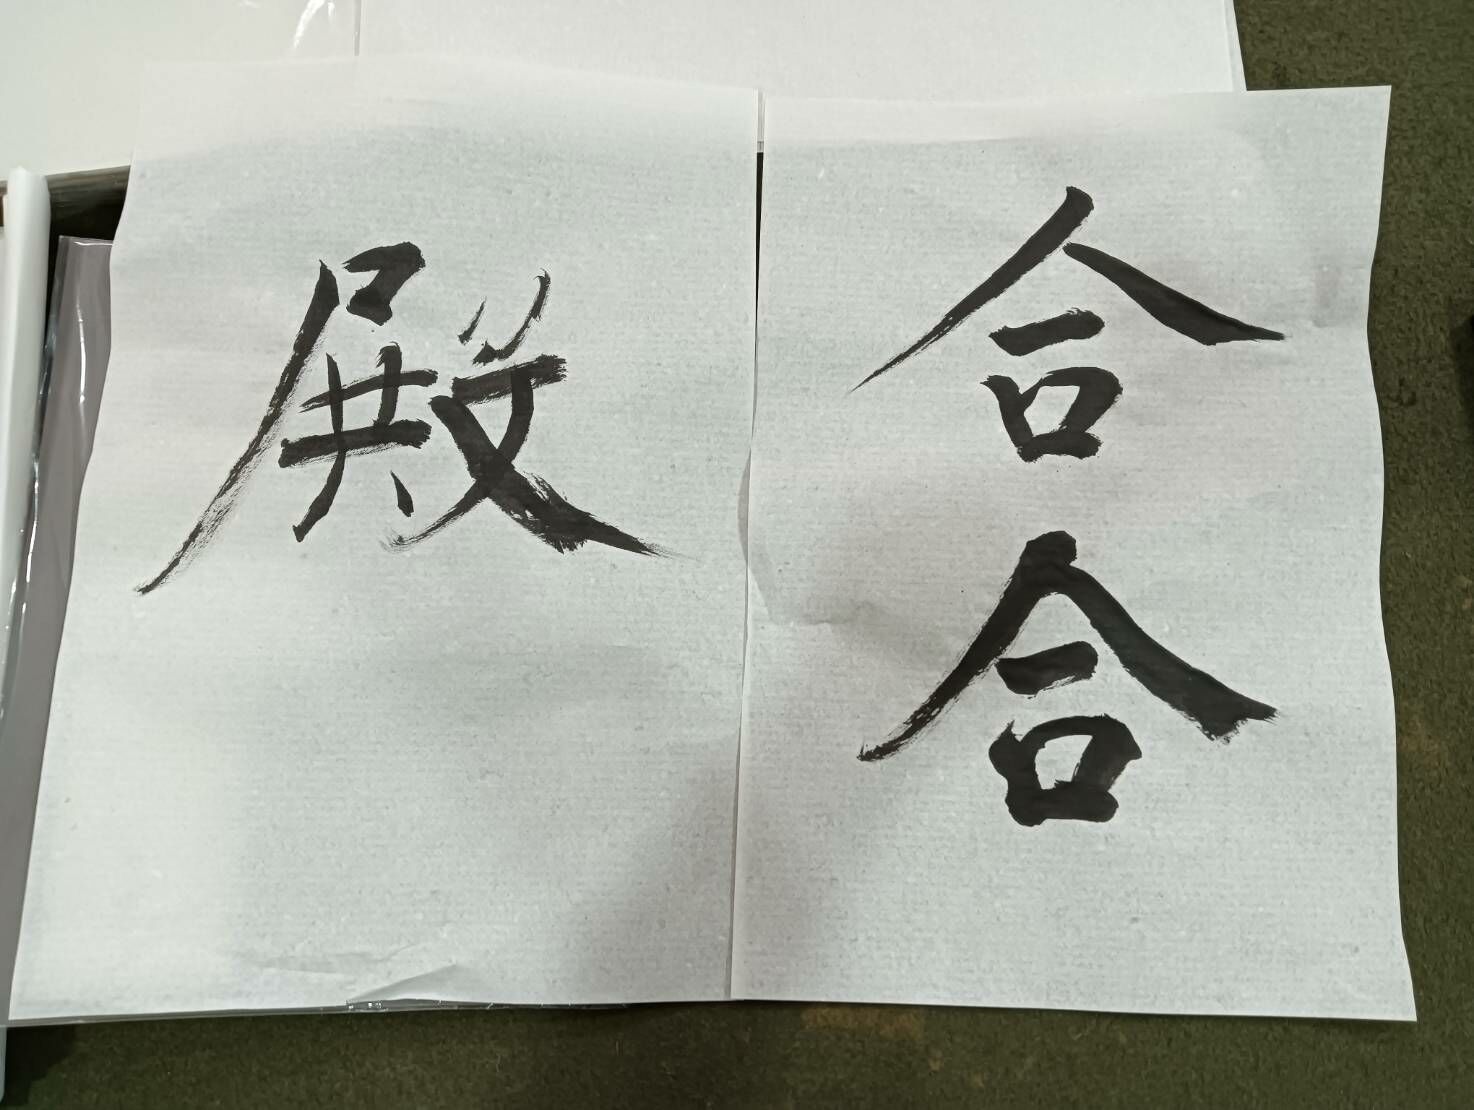 合
合
殿